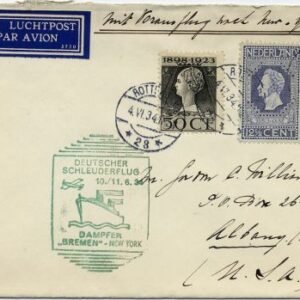 LUCHTPOST
PAR AVION
mit Vorausflug nach New-
1898-1923
50 CT
NEDERLAND
12½ CENT
ROTT
4.VI 34
* 28 *
DEUTSCHER
SCHLEUDERFLUG
10./11.6.34
DAMPFER
„BREMEN" - NEW YORK
P.O. Box 26
Albany
U.S.A.